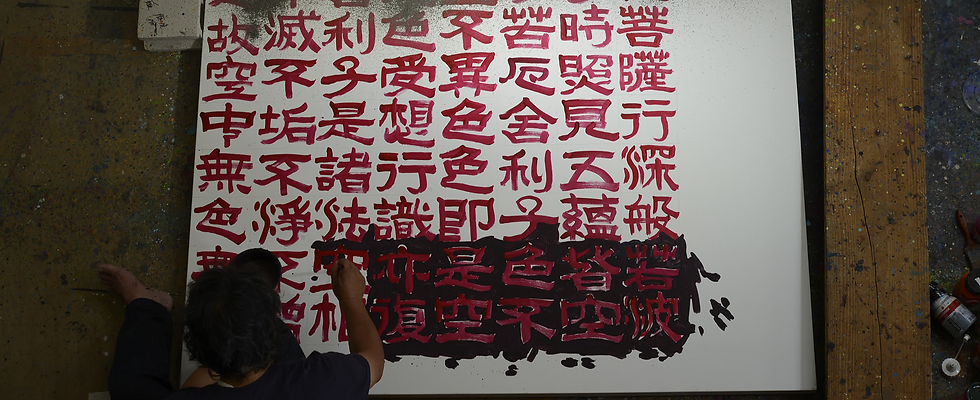 菩薩行深般若波
時照見五蘊皆空
苦厄舍利子色不
不異色色即是空
色受想行識亦復
利子是諸法空相
滅不垢不淨不增
故空中無色無